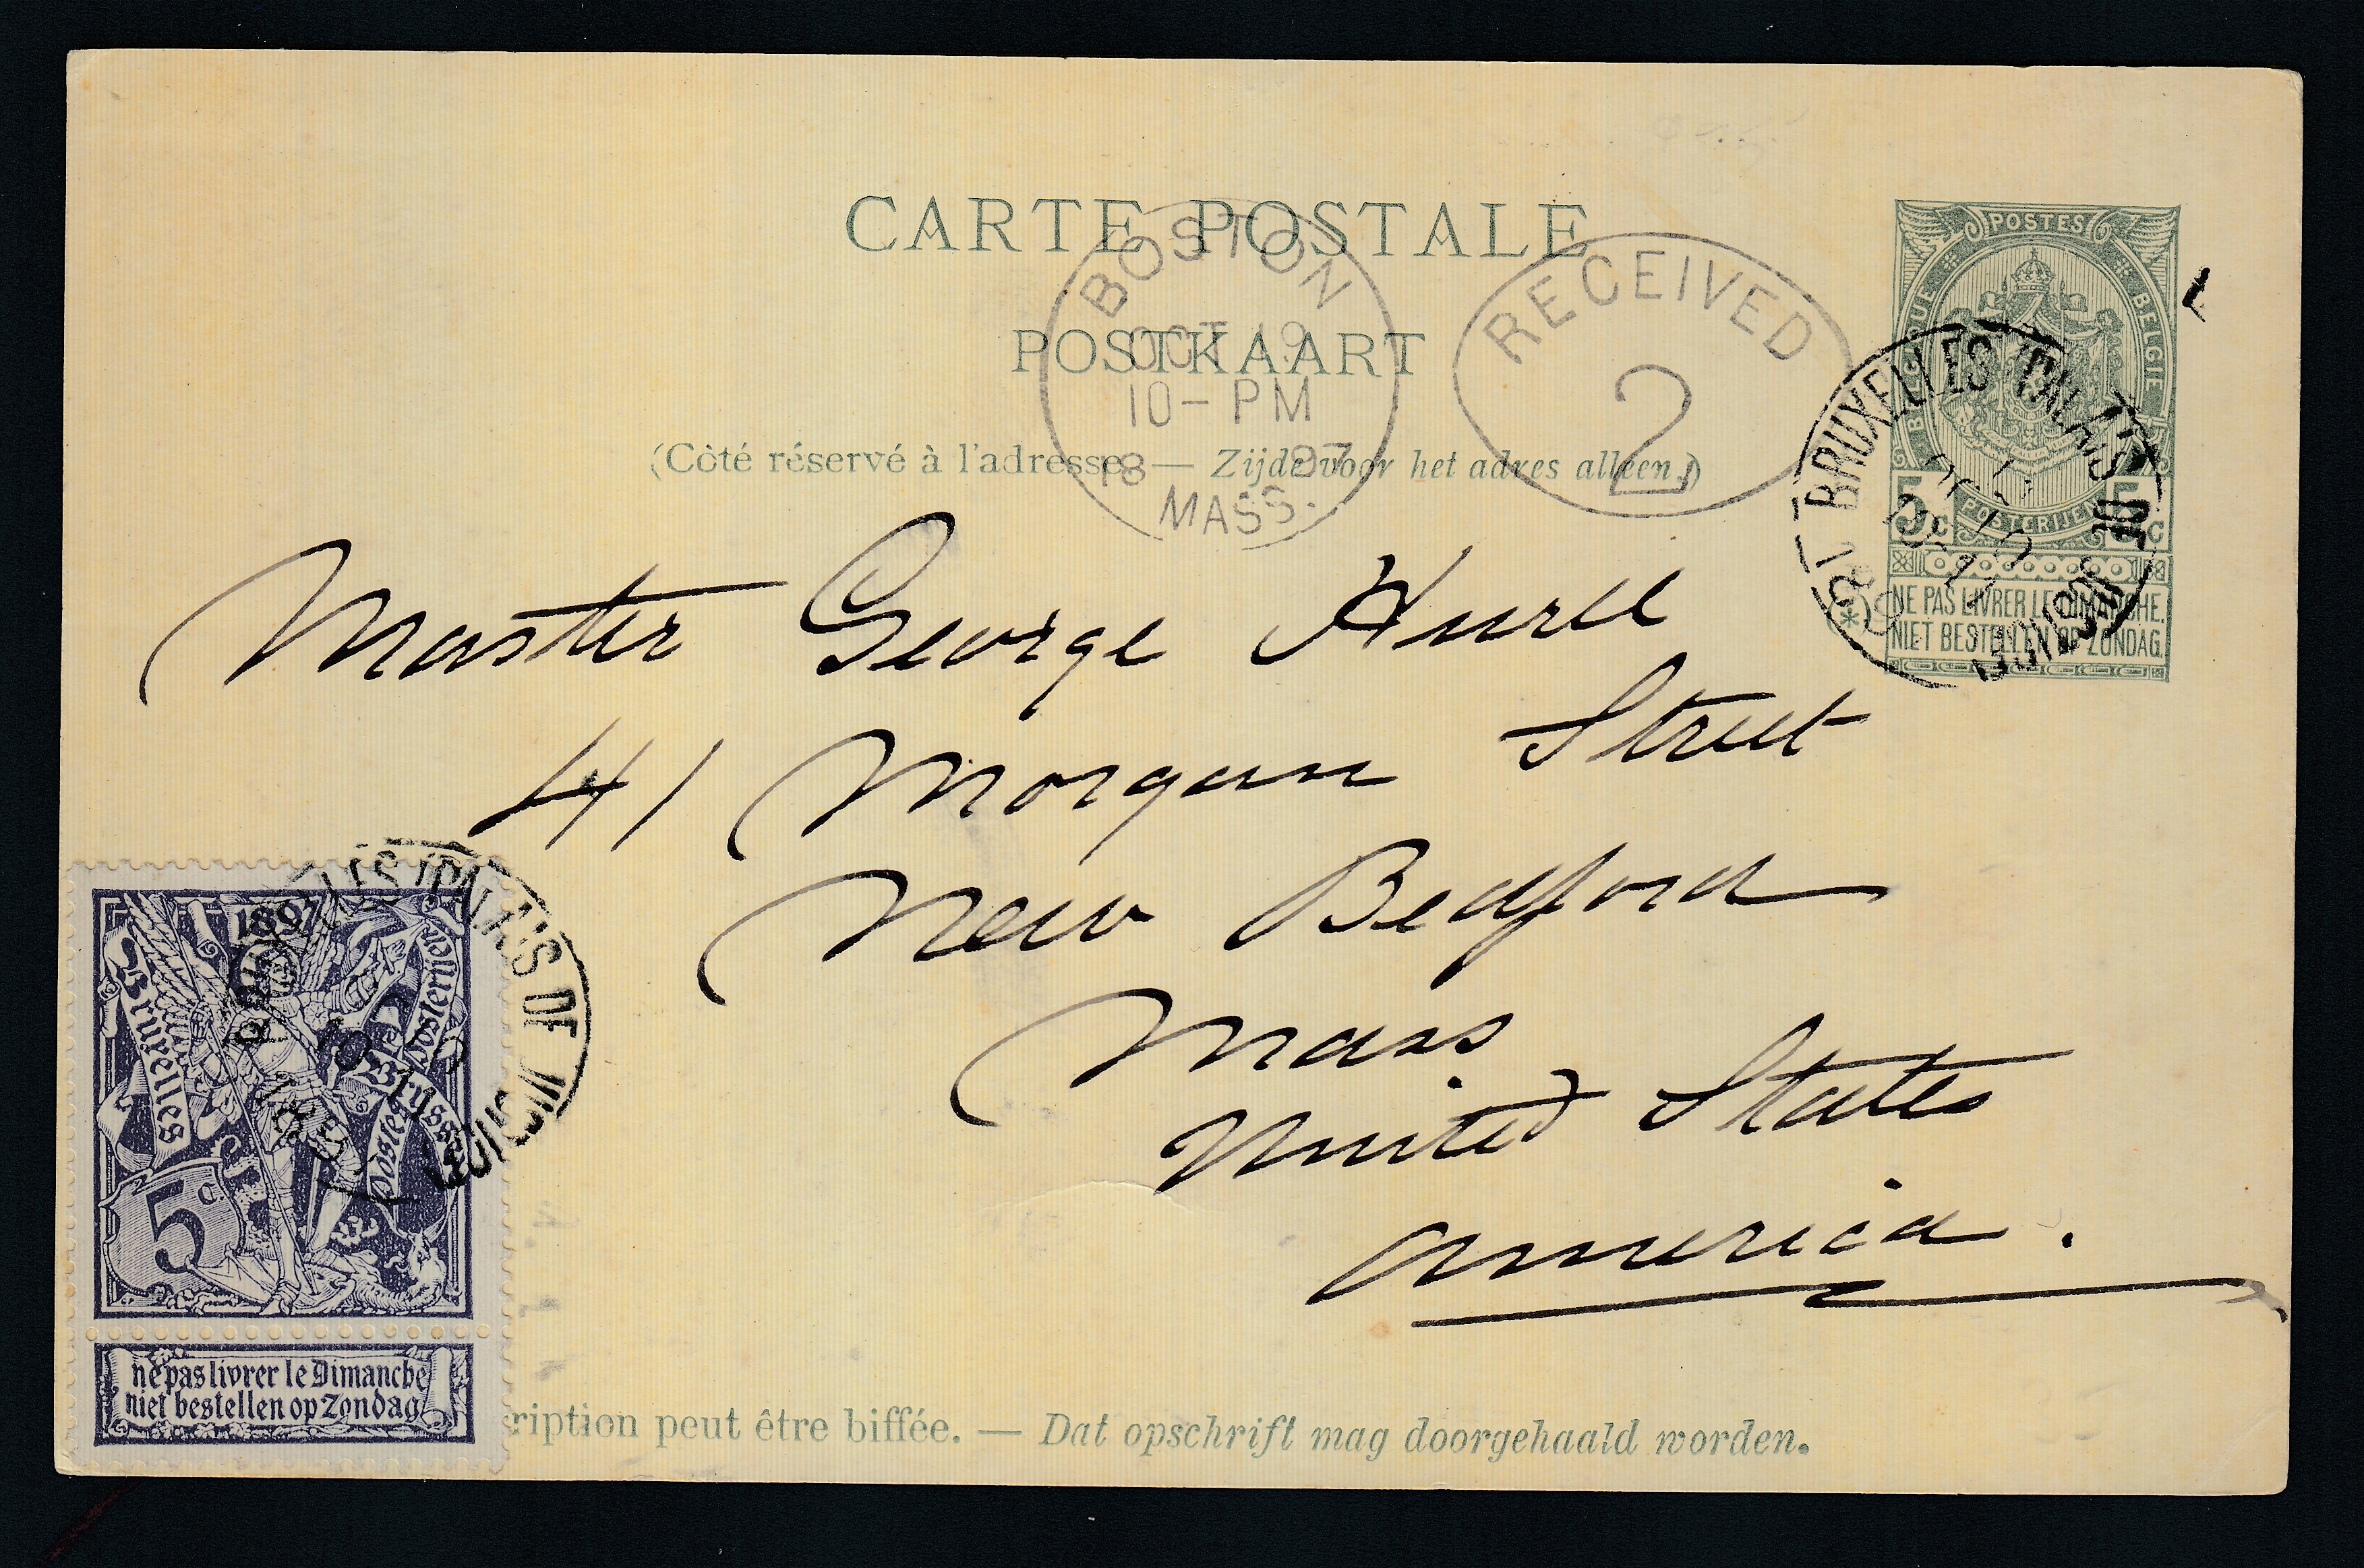 CARTE POSTALE
POSTKAART
(Côté réservé à l'adresse. — Zijde voor het adres alleen.)
BOSTON
OCT 19
10-PM
18 97
MASS.
RECEIVED
2
POSTES
BELGIQUE BELGIE
5c 5c
POSTERIJEN
NE PAS LIVRER LE DIMANCHE.
NIET BESTELLEN OP ZONDAG.
BRUXELLES (PALAIS DE JUSTICE)
Master George Hurll
41 Morgan Street
New Bedford
Mass.
United States
America.
1897
Bruxelles
Brussel
Postes
Posterijen
5c.
ne pas livrer le Dimanche
niet bestellen op Zondag
BRUXELLES (PALAIS DE JUSTICE)
ription peut être biffée. — Dat opschrift mag doorgehaald worden.